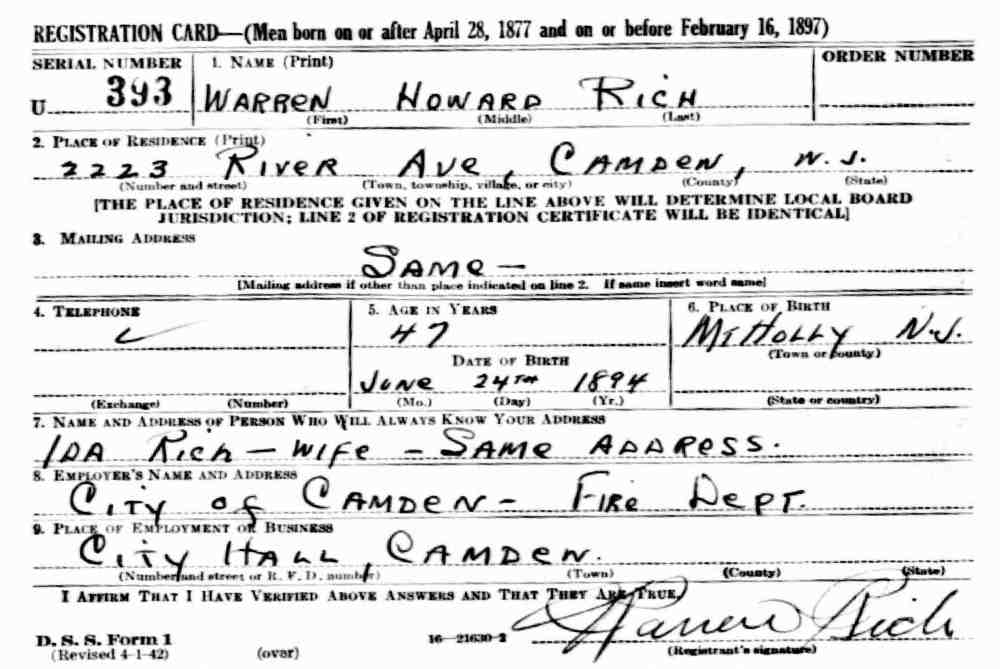 REGISTRATION CARD—(Men born on or after April 28, 1877 and on or before February 16, 1897)
SERIAL NUMBER 1. NAME (Print) ORDER NUMBER
U 393 WARREN HOWARD RICH
(First) (Middle) (Last)
2. PLACE OF RESIDENCE (Print)
2223 RIVER AVE, CAMDEN, N.J.
(Number and street) (Town, township, village, or city) (County) (State)
[THE PLACE OF RESIDENCE GIVEN ON THE LINE ABOVE WILL DETERMINE LOCAL BOARD
JURISDICTION; LINE 2 OF REGISTRATION CERTIFICATE WILL BE IDENTICAL]
3. MAILING ADDRESS
SAME —
[Mailing address if other than place indicated on line 2. If same insert word same]
4. TELEPHONE 5. AGE IN YEARS 6. PLACE OF BIRTH
47 MT HOLLY N.J.
(Town or county)
DATE OF BIRTH
JUNE 24TH 1894
(Exchange) (Number) (Mo.) (Day) (Yr.) (State or country)
7. NAME AND ADDRESS OF PERSON WHO WILL ALWAYS KNOW YOUR ADDRESS
IDA RICH — WIFE — SAME ADDRESS.
8. EMPLOYER'S NAME AND ADDRESS
CITY OF CAMDEN — FIRE DEPT.
9. PLACE OF EMPLOYMENT OR BUSINESS
CITY HALL, CAMDEN.
(Number and street or R. F. D. number) (Town) (County) (State)
I AFFIRM THAT I HAVE VERIFIED ABOVE ANSWERS AND THAT THEY ARE TRUE.
Warren Rich
D. S. S. Form 1 16—21630-2
(Revised 4-1-42) (over) (Registrant's signature)